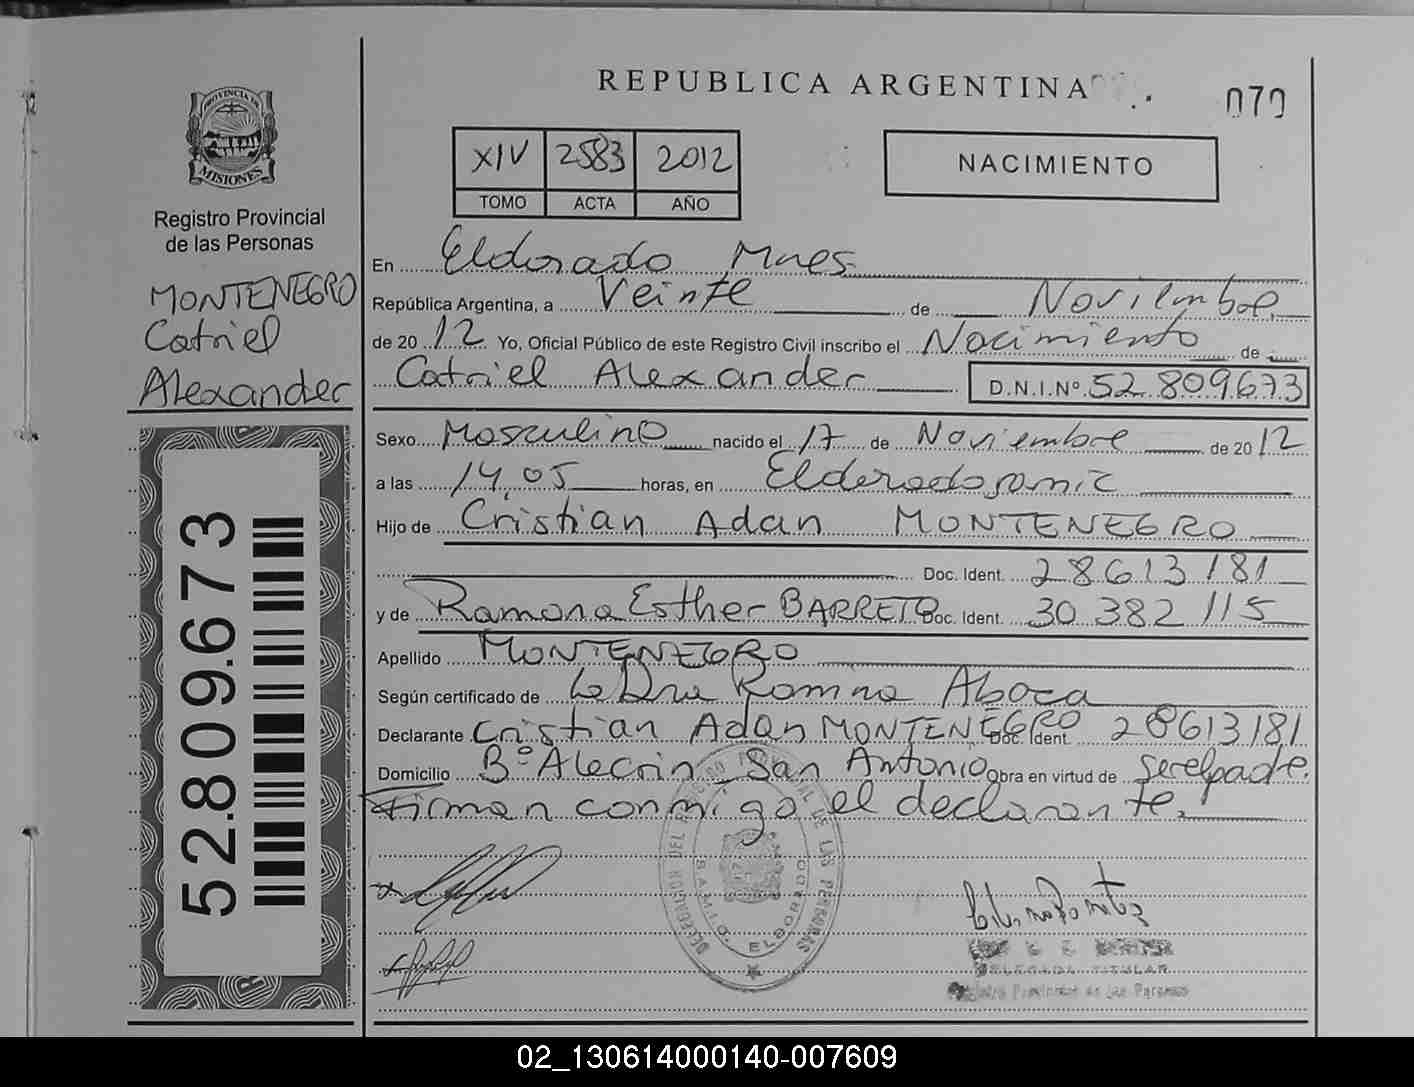 REPUBLICA ARGENTINA
070
PROVINCIA DE
MISIONES
Registro Provincial
de las Personas
MONTENEGRO
Catriel
Alexander
52.809.673
XIV 2583 2012
TOMO ACTA AÑO
NACIMIENTO
En Eldorado Mnes
República Argentina, a Veinte de Noviembre
de 2012 Yo, Oficial Público de este Registro Civil inscribo el Nacimiento de
Catriel Alexander D.N.I.Nº 52.809.673
Sexo Masculino nacido el 17 de Noviembre de 2012
a las 14,05 horas, en Eldorado
Hijo de Cristian Adan MONTENEGRO
Doc. Ident. 28613181
y de Ramona Esther BARRETO Doc. Ident. 30 382 115
Apellido MONTENEGRO
Según certificado de La Dra Romina
Declarante Cristian Adan MONTENEGRO Doc. Ident. 28613181
Domicilio Bº Alecrin San Antonio Obra en virtud de ser el padre.
Firman conmigo el declarante.
DELEGACION DEL REGISTRO PROVINCIAL DE LAS PERSONAS
DELEGADA TITULAR
Registro Provincial de las Personas
02_130614000140-007609